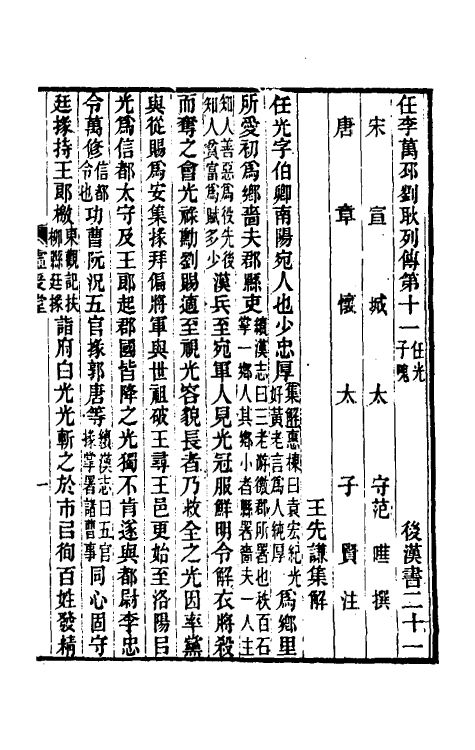 任李萬邳劉耿列傳第十一任光子隗 後漢書二十一
宋宣城太守范曄撰
唐章懷太子賢注
王先謙集解
任光字伯卿南陽宛人也少忠厚集解惠棟曰袁宏紀光好黃老言爲人純厚爲鄉里
所愛初爲鄉嗇夫郡縣吏續漢志曰三老游徼郡所署也秩百石掌一鄉人其鄉小者縣署嗇夫一人主
知人善惡爲役先後知人貧富爲賦多少漢兵至宛軍人見光冠服鮮明令解衣將殺
而奪之會光祿勳劉賜適至視光容貌長者乃救全之光因率黨
與從賜爲安集掾拜偏將軍與世祖破王尋王邑更始至洛陽㠯
光爲信都太守及王郎起郡國皆降之光獨不肯遂與都尉李忠
令萬修信都令也功曹阮況五官掾郭唐等續漢志曰五官掾掌署諸曹事同心固守
廷掾持王郎檄東觀記扶柳縣廷掾詣府白光光斬之於市㠯徇百姓發精
虛受堂
一